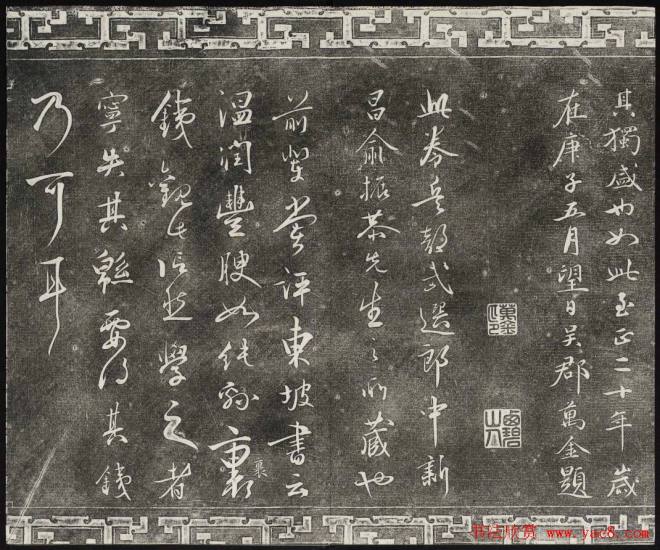 其獨盛也如此至正二十年歲
在庚子五月望日吴郡萬金題
此卷兵部武選郎中新
昌俞振恭先生之所藏也
前輩嘗評東坡書云
溫潤豐腴如純綿裹
裹
鐵觀此信然學之者
寧失其綿要得其鐵
乃可耳
书法欣赏
www.yac8.com